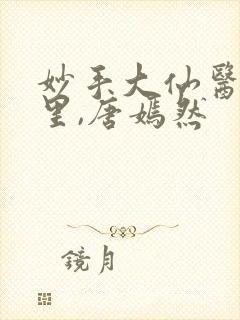 妙手大仙醫
里,唐嫣然
鏡月